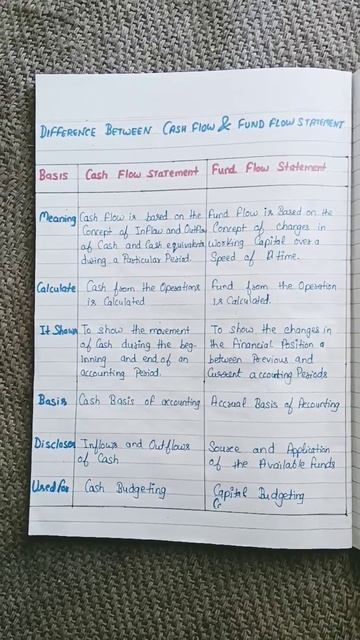 DIFFERENCE BETWEEN CASH FLOW & FUND FLOW STATEMENT
Basis
Cash Flow STATEMENT
Fund Flow Statement
Meaning
Cash Flow is based on the
Concept of Inflow and Outflow
of Cash and Cash equivalents
during a Particular Period.
Fund Flow is Based on the
Concept of changes in
Working Capital over a
Speed of A time.
Calculate
Cash from the Operations
is Calculated
Fund from the Operation
is Calculated.
It Shows
To show the movement
of Cash during the beg-
inning and end of an
accounting Period.
To show the changes in
the Financial Position a
between Previous and
Current accounting Periods
Basis
Cash Basis of accounting
Accrual Basis of Accounting
Discloses
Inflows and Outflows
of Cash
Source and Application
of the Available funds
Used for
Cash Budgeting
Capital Budgeting